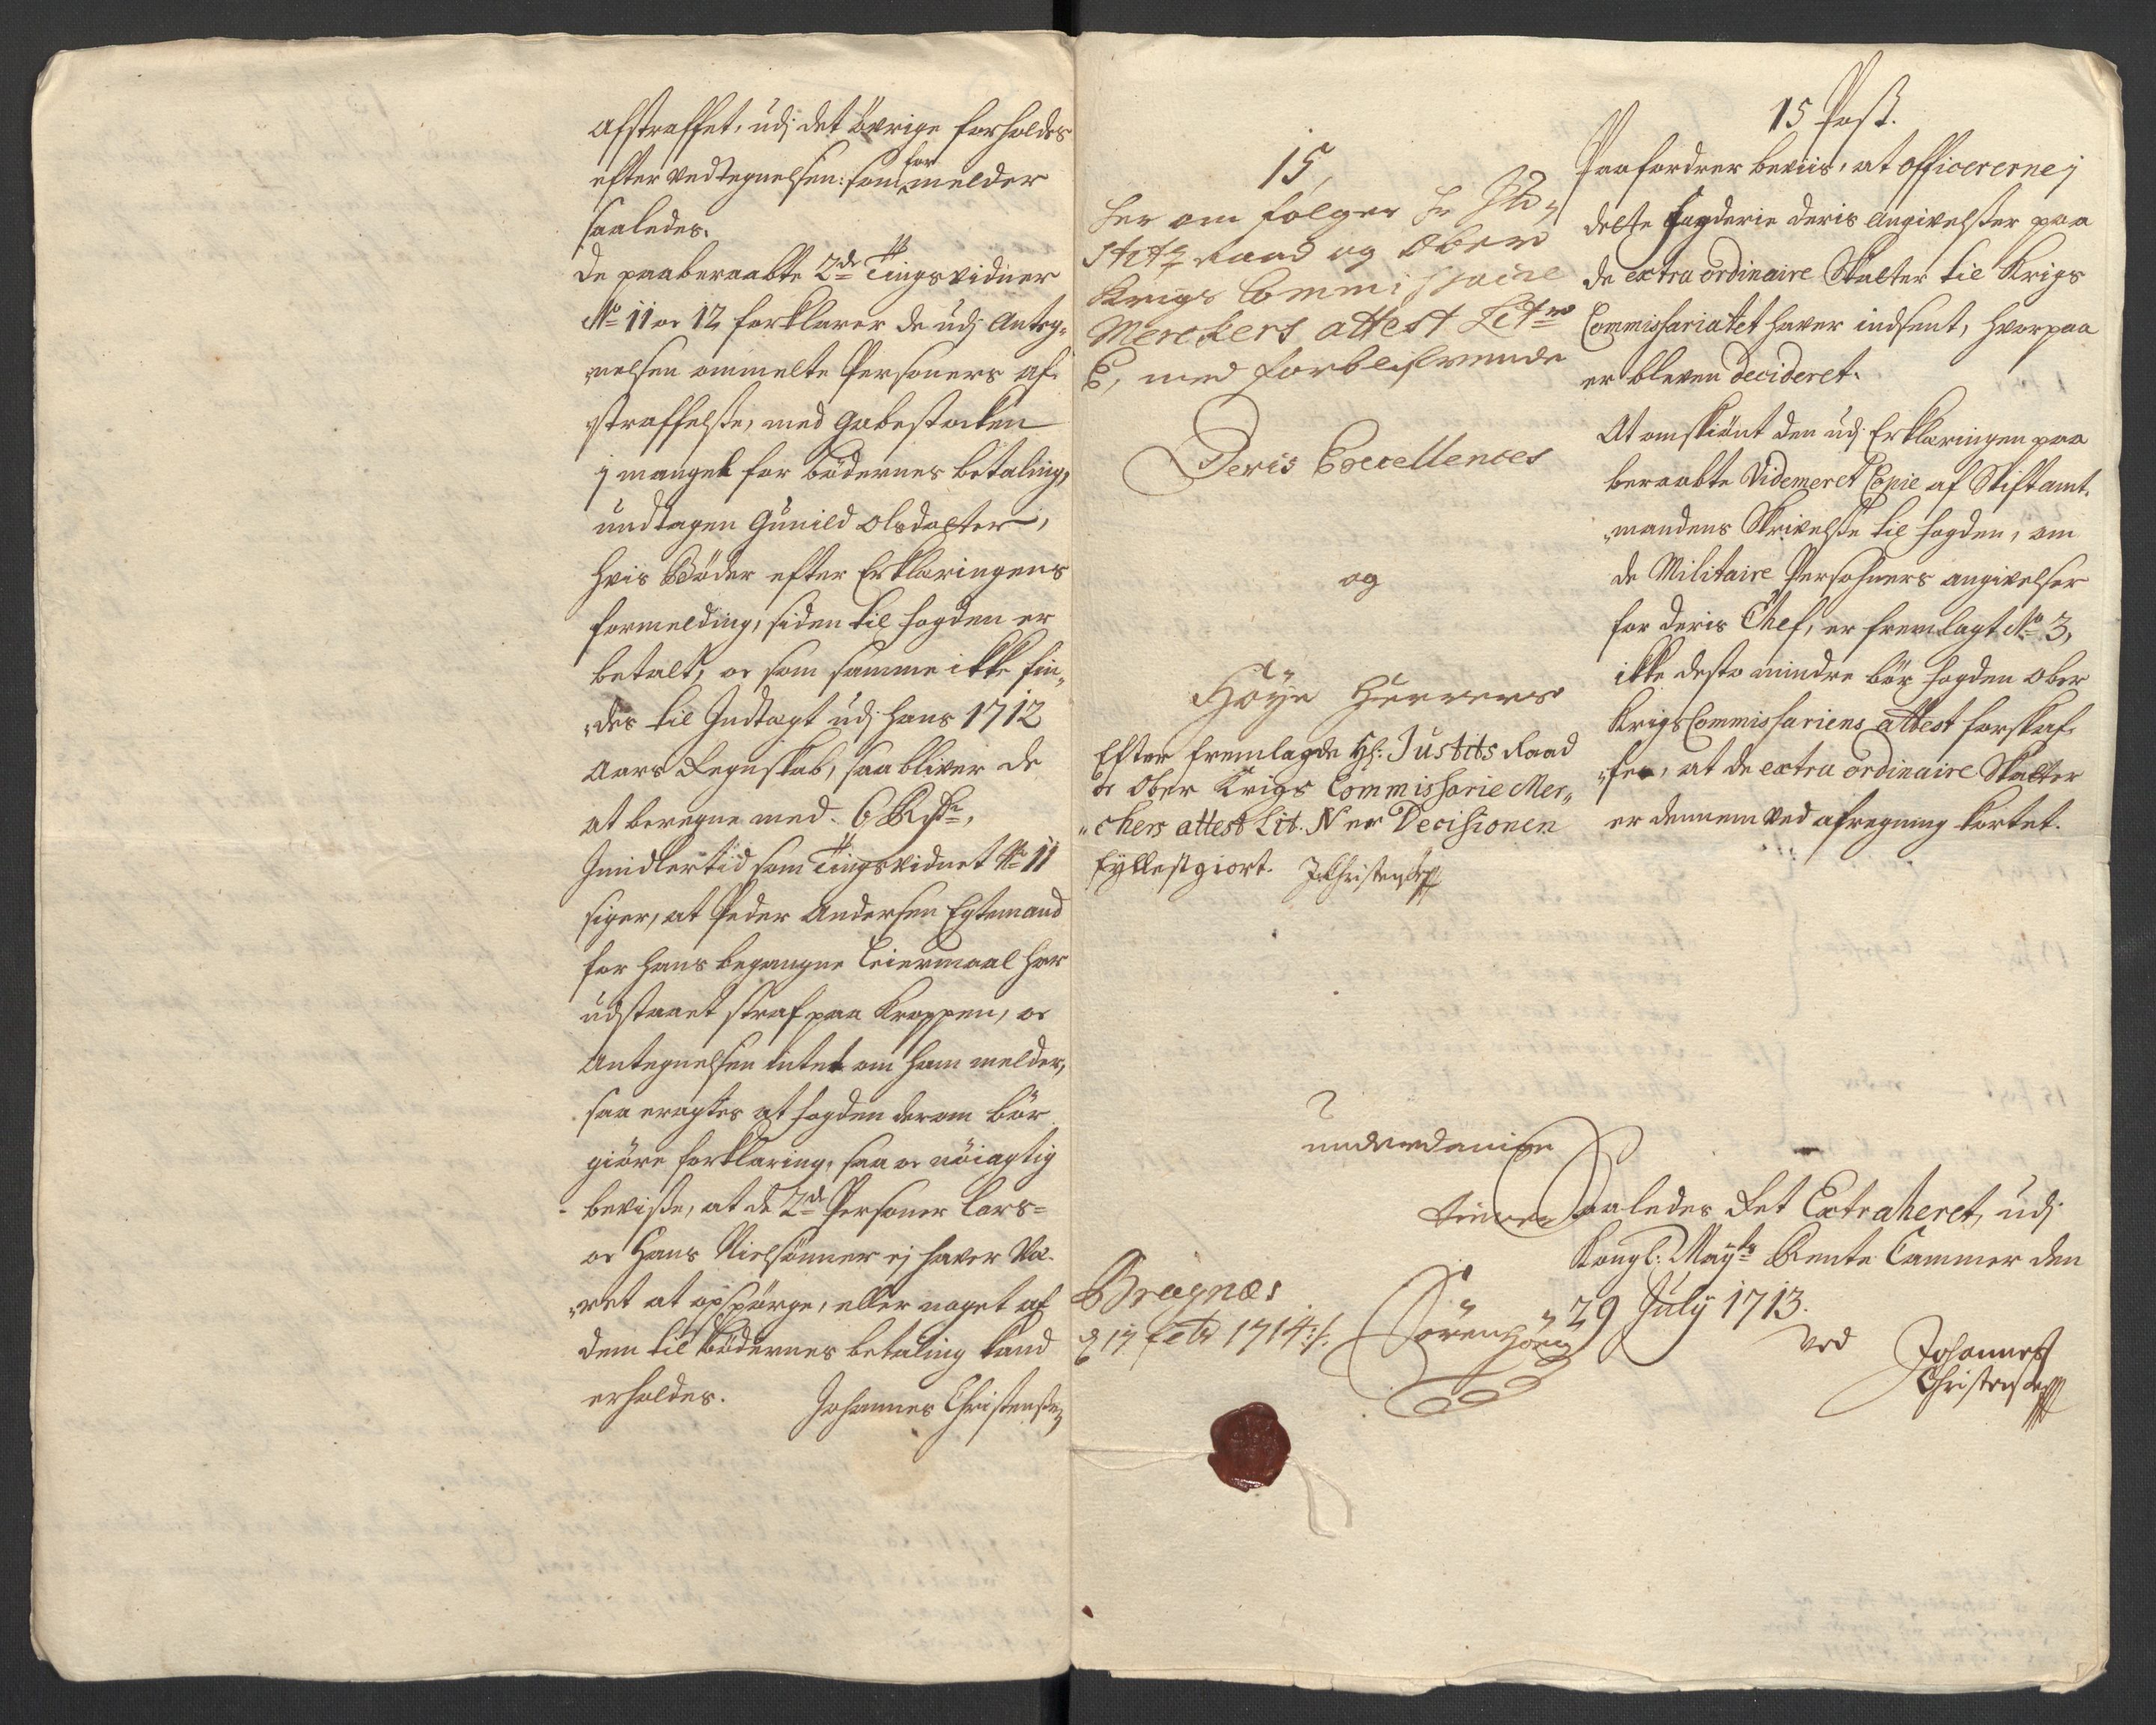 afstraffet, udj det övrige forholdes
efter Vedtegnelsen: som for melder
saaledes.
De paaberaabte 2de Tingsvidner
No 11 og 12 forklarer de udj Anteg,,
,,nelsen ommelte Personers af,,
straffelse, med gabestocken
j mangel for bödernes betaling,
undtagen Gunild Olsdatter,
hvis Böder efter Erklæringens
formelding, siden til fogden er
betalt, og som samme ikke fin,,
,,des til Indtægt udj hans 1712
Aars Regnskab, saa bliver de
at beregne med. 6 Rdr,
Imidlertid som Tingsvidnet No 11
siger, at Peder Andersen Egtemand
for hans begangne Leiermaal har
udstaaet straf paa Kroppen, og
Antegnelsen intet om ham melder,
saa eragtes at fogden derom bör
giöre forklaring, saa og nöiagtig
bevisse, at de 2de Personer Lars=
og Hans Nielsönner ej haver Væ,,
,,ret at opspörge, eller noget af
dem til Bödernes betaling kand
erholdes. Johannes Christensen
15,
her om fölger Hr Ju,,
stitz Raad og Ober
Krigs Commissarie
Merckers attest Litra
E, med forblifvende
Deris Excellences
og
Höye Herrers
Efter fremlagde Hr: Justits Raad
og Ober Krigs Commissarie Mer,,
,,chers attest Lit. N er Decisionen
fyllestgiort. J Christensen
underdanige
tiener
Bragnæs
d 17 febr 1714 ∙/.
Sören Hörg
15 Post.
Paafordrer beviis, at officererne j
dette fogderie deris angivelser paa
de extra ordinaire Skatter til Krigs
Commissariatet haver indsent, hvorpaa
er bleven decideret.
At omskiönt den udj Erklæringen paa
beraabte Videmeret Copie af Stiftamt,,
,,mandens Skrivelse til fogden, om
de Militaire Persohners angivelser
for deris Chef, er fremlagt No 3,
ikke desto mindre bör fogden Ober
Krigs Commissariens attest forskaf,,
,,fe, at de extra ordinaire Skatter
er dennem Ved afregning kortet.
Saaledes Ret Extraheret, udj
Kongl: Mayts Rente Cammer den
29 July 1713.
Ved Johannes
Christensen